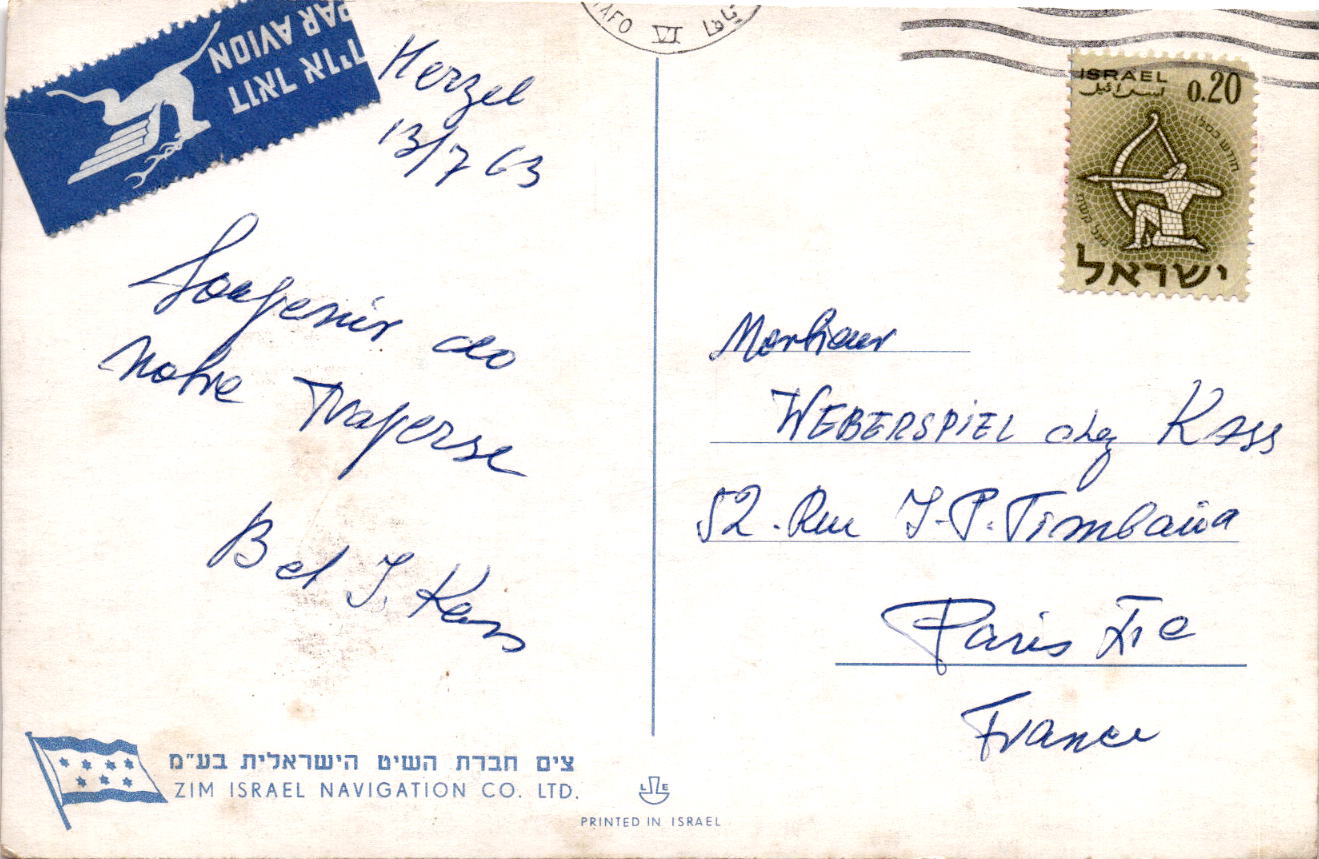 PAR AVION
דואר אויר
YAFO VI يافا
Herzel
13/7 63
Souvenir de
Notre Traverse
Bel J. Kass
ISRAEL
0.20
اسرائيل
חודש כסלו
מזל קשת
ישראל
Monsieur
WEBERSPIEL chez Kass
52. Rue J-P. Timbaua
Paris XIe
France
צים חברת השיט הישראלית בע"מ
ZIM ISRAEL NAVIGATION CO. LTD.
L E
PRINTED IN ISRAEL